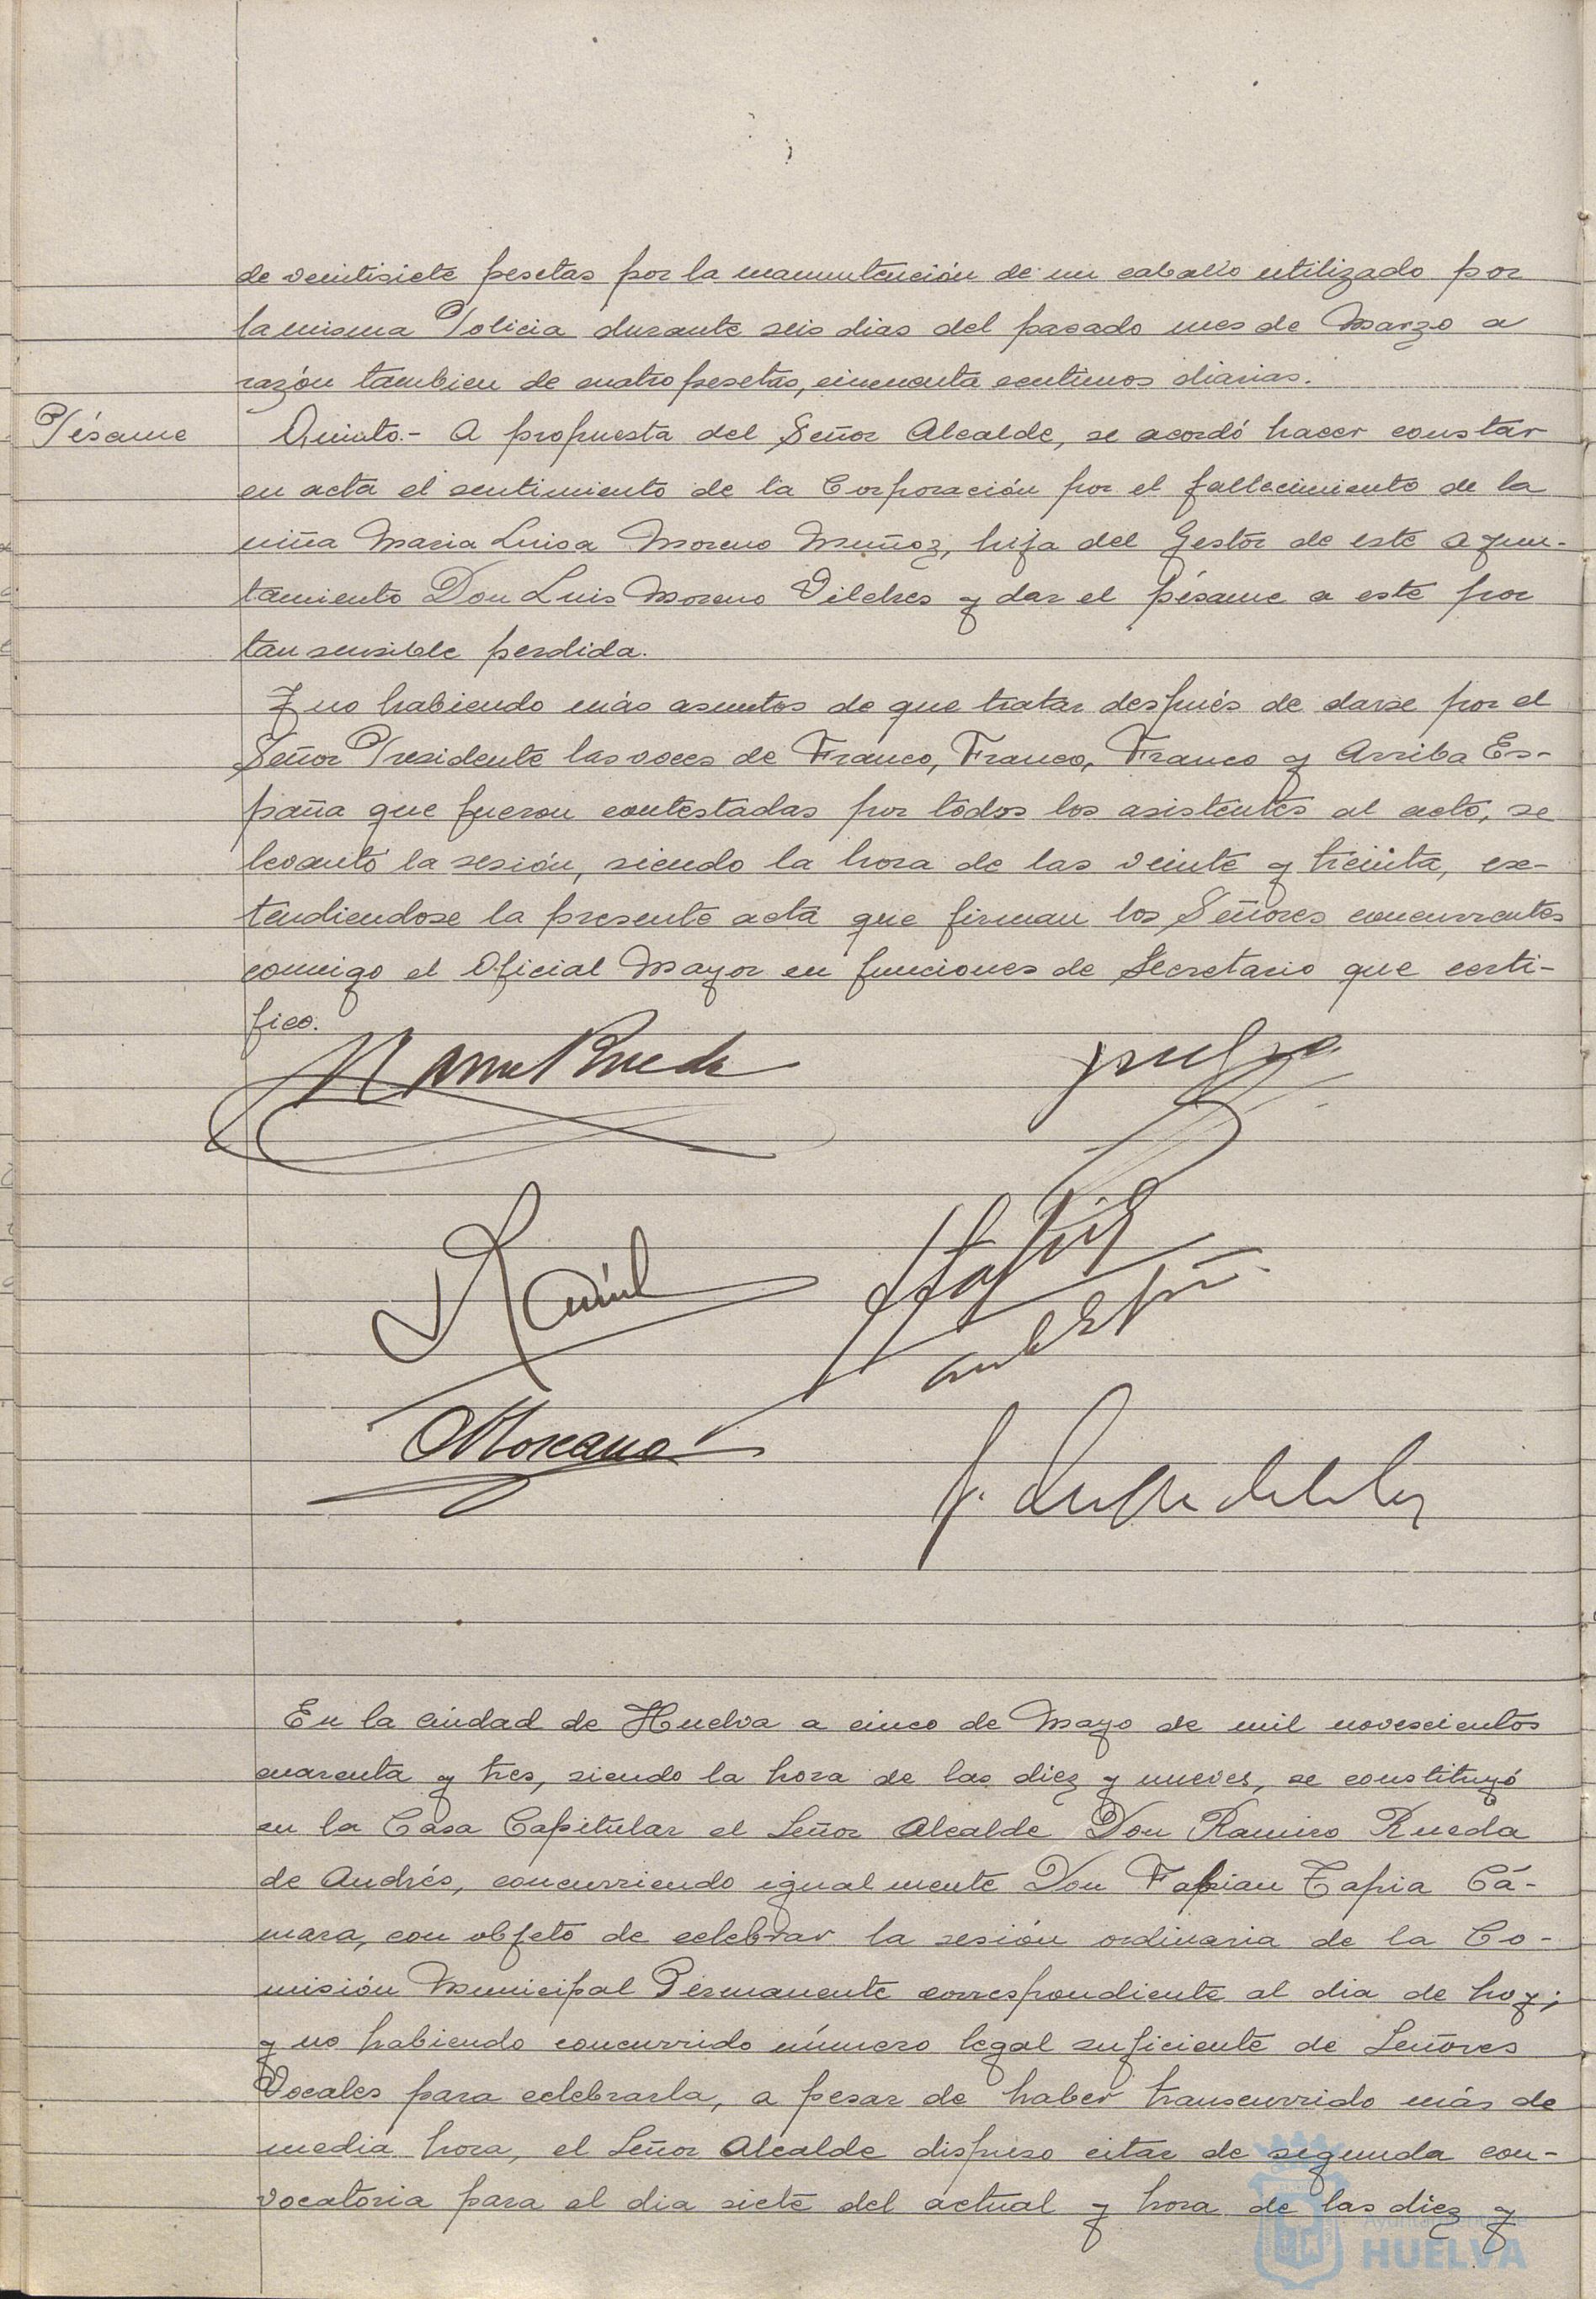 de veintisiete pesetas por la manutención de un caballo utilizado por
la misma Policia durante seis dias del pasado mes de Marzo a
razón tambien de cuatro pesetas, cincuenta centimos diarias.
Pésame
Quinto.- A propuesta del Señor Alcalde, se acordó hacer constar
en acta el sentimiento de la Corporación por el fallecimiento de la
niña Maria Luisa Moreno Muñoz, hija del Gestor de este Ayun-
tamiento Don Luis Moreno Vilches y dar el pésame a este por
tan sensible perdida.
Y no habiendo más asuntos de que tratar después de darse por el
Señor Presidente las voces de Franco, Franco, Franco y Arriba Es-
paña que fueron contestadas por todos los asistentes al acto, se
levantó la sesión, siendo la hora de las veinte y treinta, ex-
tendiendose la presente acta que firman los Señores concurrentes
conmigo el Oficial Mayor en funciones de Secretario que certi-
fico.
Rueda
En la ciudad de Huelva a cinco de Mayo de mil novescientos
cuarenta y tres, siendo la hora de las diez y nueves, se constituyó
en la Casa Capitular el Señor Alcalde Don Ramiro Rueda
de Andrés, concurriendo igualmente Don Fabian Tapia Cá-
mara, con objeto de celebrar la sesión ordinaria de la Co-
misión Municipal Permanente correspondiente al dia de hoy;
y no habiendo concurrido número legal suficiente de Señores
Vocales para celebrarla, a pesar de haber transcurrido más de
media hora, el Señor Alcalde dispuso citar de segunda con-
vocatoria para el dia siete del actual y hora de las diez y
Ayuntamiento de
HUELVA